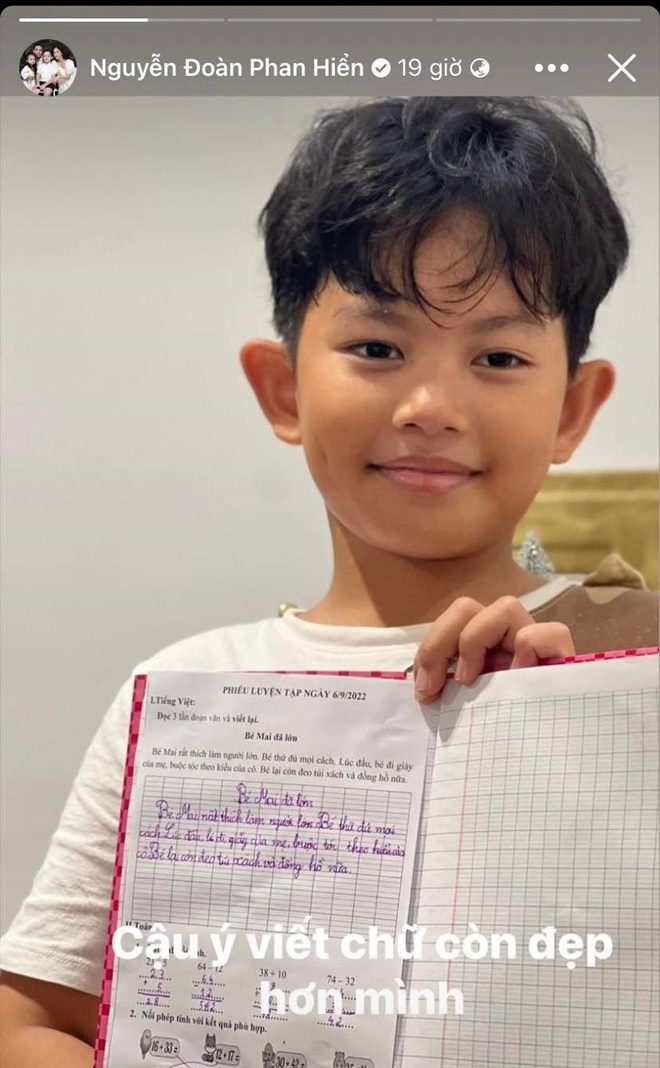 Nguyễn Đoàn Phan Hiển 19 giờ
PHIẾU LUYỆN TẬP NGÀY 6/9/2022
I.Tiếng Việt:
Đọc 3 lần đoạn văn và viết lại.
Bé Mai đã lớn
Bé Mai rất thích làm người lớn. Bé thử đủ mọi cách. Lúc đầu, bé đi giày
của mẹ, buộc tóc theo kiểu của cô. Bé lại còn đeo túi xách và đồng hồ nữa.
Bé Mai đã lớn
Bé Mai rất thích làm người lớn. Bé thử đủ mọi
cách Lúc đầu, bé đi giấy của mẹ, buộc tóc theo kiểu của
cô Bé lại còn đeo túi xách và đồng hồ nữa.
II.Toán
Cậu ý viết chữ còn đẹp
hơn mình
64 - 12
38 + 10
74 - 32
2. Nối phép tính với kết quả phù hợp.
16 + 33 =
12 + 17 =
30 + 42 =